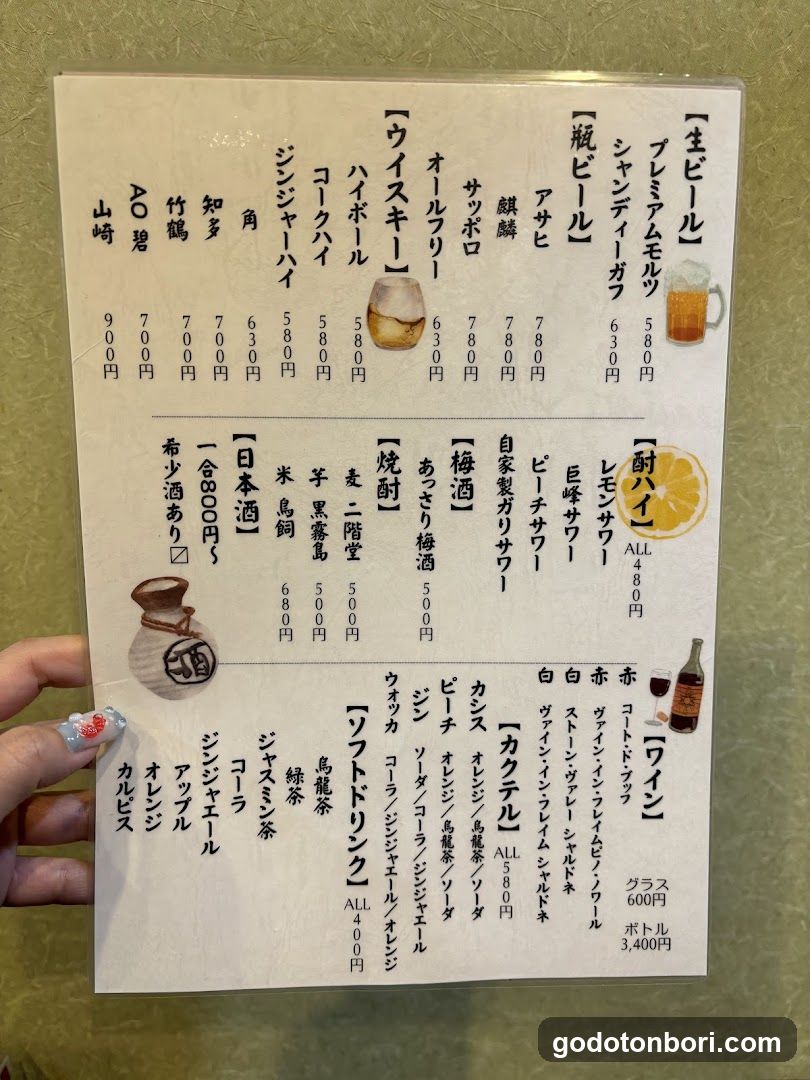 【生ビール】
プレミアムモルツ 580円
シャンディーガフ 630円
【瓶ビール】
アサヒ 780円
麒麟 780円
サッポロ 780円
オールフリー 630円
【ウイスキー】
ハイボール 580円
コークハイ 580円
ジンジャーハイ 580円
角 630円
知多 700円
竹鶴 700円
AO 碧 700円
山崎 900円
【酎ハイ】 ALL 480円
レモンサワー
巨峰サワー
ピーチサワー
自家製ガリサワー
【梅酒】
あっさり梅酒 500円
【焼酎】
麦 二階堂 500円
芋 黒霧島 500円
米 鳥飼 680円
【日本酒】
一合800円〜
希少酒あり〼
酒
【ワイン】
グラス
600円
ボトル
3,400円
赤 コート・ド・ブッフ
赤 ヴァイン・イン・フレイムピノ・ノワール
白 ストーン・ヴァレー シャルドネ
白 ヴァイン・イン・フレイム シャルドネ
【カクテル】 ALL 580円
カシス オレンジ／烏龍茶／ソーダ
ピーチ オレンジ／烏龍茶／ソーダ
ジン ソーダ／コーラ／ジンジャエール
ウォッカ コーラ／ジンジャエール／オレンジ
【ソフトドリンク】 ALL 400円
烏龍茶
緑茶
ジャスミン茶
コーラ
ジンジャエール
アップル
オレンジ
カルピス
godotonbori.com